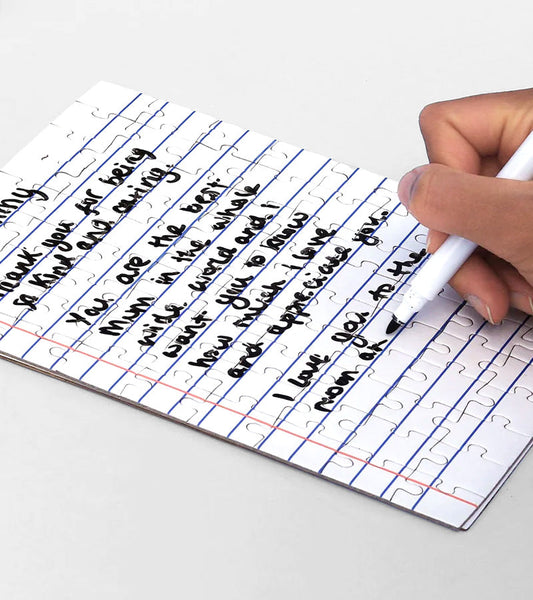 thank you for being
so kind and caring.
You are the best
Mum in the whole
wide world and i
want you to know
how much I love
and appreciate you.
I love you to the
moon an